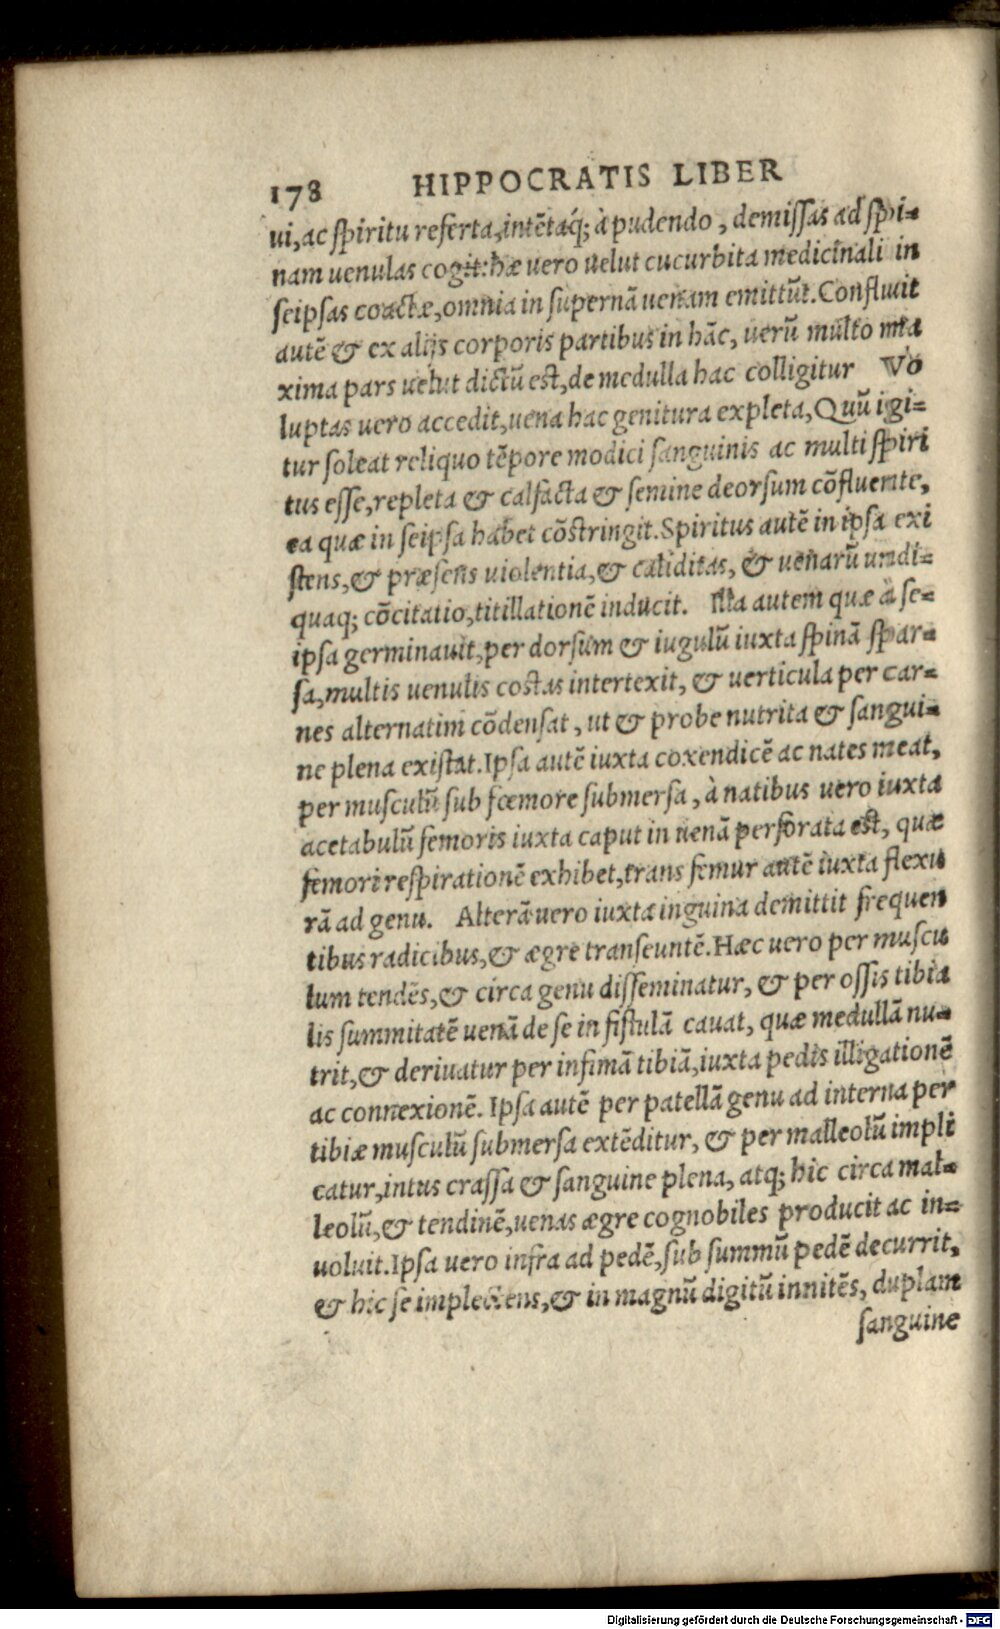 178 HIPPOCRATIS LIBER
ui, ac ſpiritu referta, intētaq́; à pudendo, demiſſas ad ſpi=
nam uenulas cogit: hæ uero uelut cucurbita medicinali in
ſeipſas coactæ, omnia in ſupernā uenam emittūt. Confluit
autē & ex alijs corporis partibus in hāc, uerū multo ma
xima pars uelut dictū eſt, de medulla hac colligitur Vo
luptas uero accedit, uena hac genitura expleta, Quū igi=
tur ſoleat reliquo tēpore modici ſanguinis ac multi ſpiri
tus eſſe, repleta & calfacta & ſemine deorſum cōfluente,
ea quæ in ſeipſa habet cōſtringit. Spiritus autē in ipſa exi
ſtens, & præſens uiolentia, & caliditas, & uenarū undi=
quaq; cōcitatio, titillationē inducit. Illa autem quæ à ſe=
ipſa germinauit, per dorſum & iugulū iuxta ſpinā ſpar=
ſa, multis uenulis coſtas intertexit, & uerticula per car=
nes alternatim cōdenſat, ut & probe nutrita & ſangui=
ne plena exiſtat. Ipſa autē iuxta coxendicē ac nates meat,
per muſculū ſub fœmore ſubmerſa, à natibus uero iuxta
acetabulū femoris iuxta caput in uenā perforata eſt, quæ
femori reſpirationē exhibet, trans femur autē iuxta flexu
rā ad genu. Alterā uero iuxta inguina demittit frequen
tibus radicibus, & ægre tranſeuntē. Hæc uero per muſcu
lum tendēs, & circa genu diſſeminatur, & per oſſis tibia
lis ſummitatē uenā de ſe in fiſtulā cauat, quæ medullā nu=
trit, & deriuatur per infimā tibiā, iuxta pedis illigationē
ac connexionē. Ipſa autē per patellā genu ad interna per
tibiæ muſculū ſubmerſa extēditur, & per malleolū impli
catur, intus craſſa & ſanguine plena, atq; hic circa mal=
leolū, & tendinē, uenas ægre cognobiles producit ac in=
uoluit. Ipſa uero infra ad pedē, ſub ſummū pedē decurrit,
& hic ſe implectens, & in magnū digitū innitēs, duplam
ſanguine
Digitalisierung gefördert durch die Deutsche Forschungsgemeinschaft - DFG